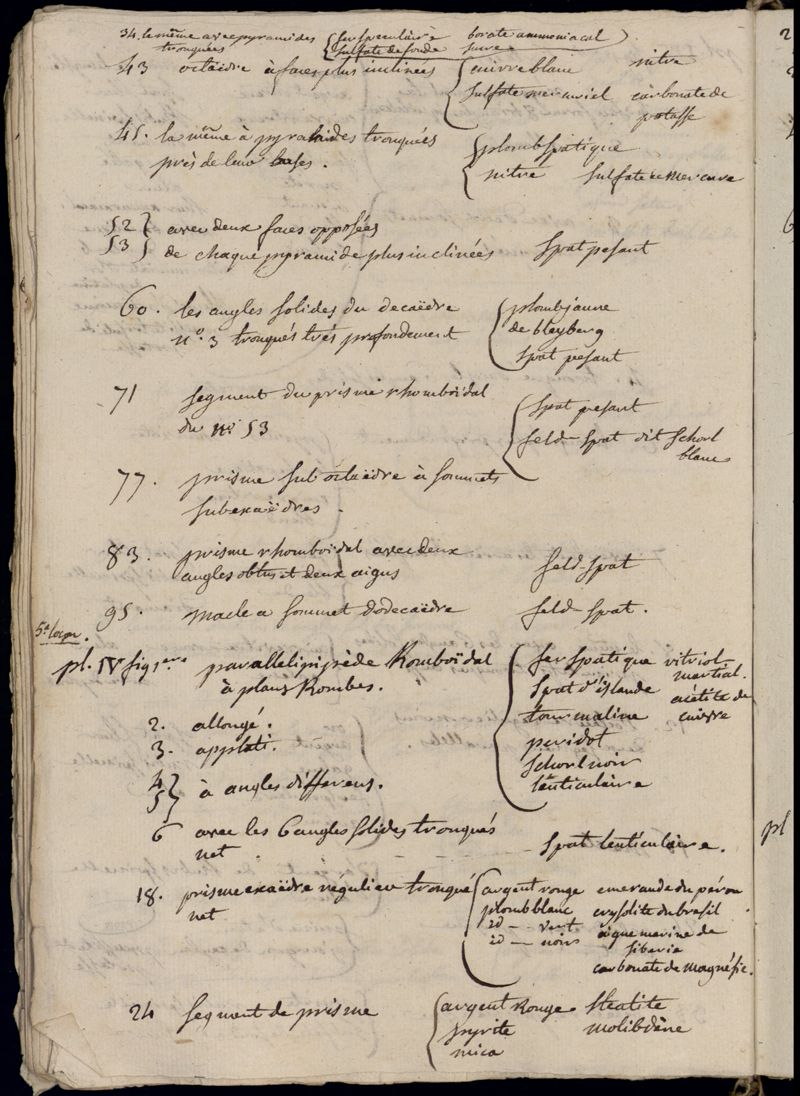 34. le même avec pyramides { fer speculaire borate ammoniacal )
tronquées sulfate de soude sucre
43 octaëdre à faces plus inclinées { cuivre blanc nitre
sulfate mercuriel carbonate de
potasse
45. la même à pyramides tronquées { plomb spatique
près de leur bases. nitre sulfate de mercure
52 } avec deux faces opposées
53 } de chaque pyramide plus inclinées spat pesant
60. les angles solides du decaëdre { plomb jaune
n.º 3 tronqués très profondement de bleyberg
spat pesant
71 segment du prisme rhomboïdal { spat pesant
du nº 53 feld-spat dit schorl
blanc
77. prisme suboctaëdre à sommets
subexaëdres.
83. prisme rhomboïdal avec deux
angles obtus et deux aigus feld-spat
95. macle a sommet dodecaëdre feld-spat.
5.e leçon.
pl. IV fig 1ere parallelipipède Romboïdal { fer spatique vitriol
à plans Rombes. spat d'islande martial.
2. allongé. tourmaline acétite de
3. applati. peridot cuivre
4 } à angles differens. schorl noir
5 } lenticulaire
6 avec les 6 angles solides tronqués
net spat lenticulaire.
18. prisme exaëdre régulier tronqué { argent rouge emeraude du pérou
net plomb blanc crysolite du bresil
id — vert aigue marine de
id — noir siberie
carbonate de magnésie.
24 segment de prisme { argent Rouge steatite
pyrite molibdène
mica
2
6
pl